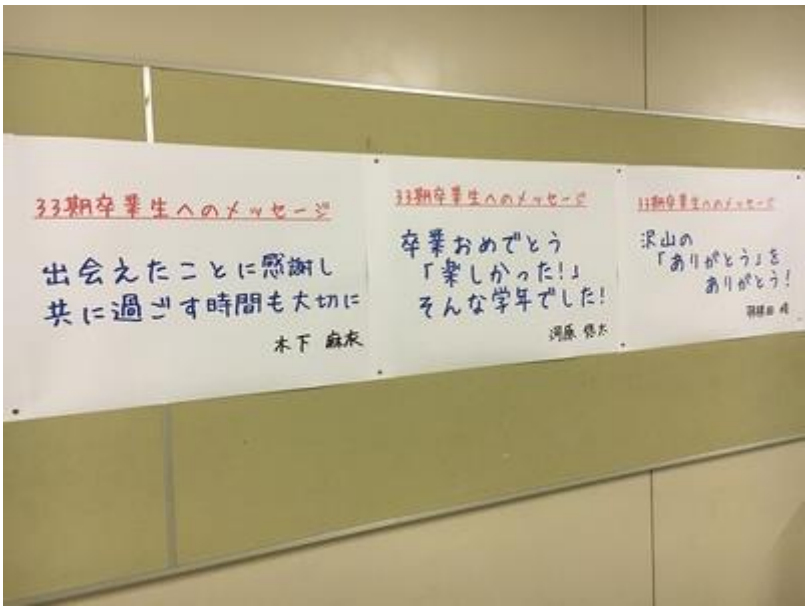 33期卒業生へのメッセージ
出会えたことに感謝し
共に過ごす時間も大切に
木下 麻衣
33期卒業生へのメッセージ
卒業おめでとう
「楽しかった!」
そんな学年でした!
河原 悠太
33期卒業生へのメッセージ
沢山の
「ありがとう」を
ありがとう!